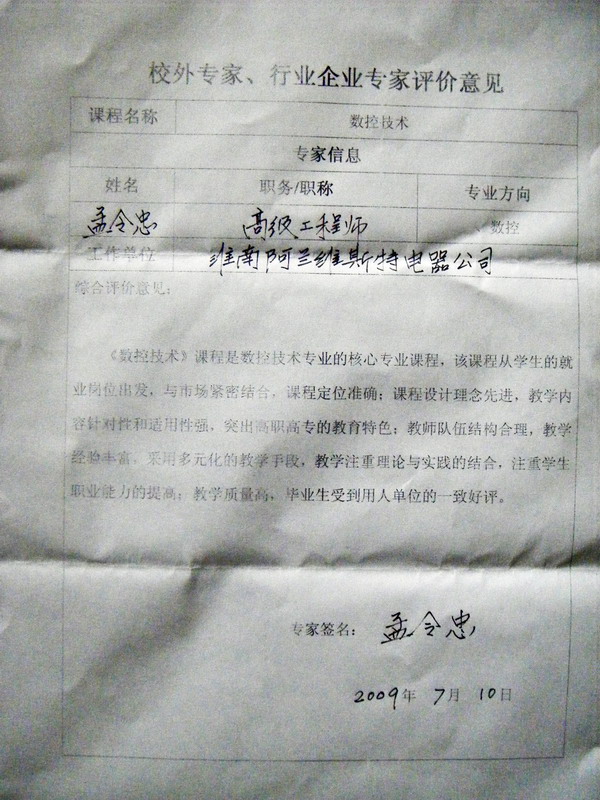 校外专家、行业企业专家评价意见
课程名称 数控技术
专家信息
姓名 职务/职称 专业方向
孟令忠 高级工程师 数控
工作单位 淮南阿兰维斯特电器公司
综合评价意见：
《数控技术》课程是数控技术专业的核心专业课程，该课程从学生的就
业岗位出发，与市场紧密结合，课程定位准确；课程设计理念先进，教学内
容针对性和适用性强，突出高职高专的教育特色；教师队伍结构合理，教学
经验丰富，采用多元化的教学手段，教学注重理论与实践的结合，注重学生
职业能力的提高；教学质量高，毕业生受到用人单位的一致好评。
专家签名： 孟令忠
2009年 7月 10日